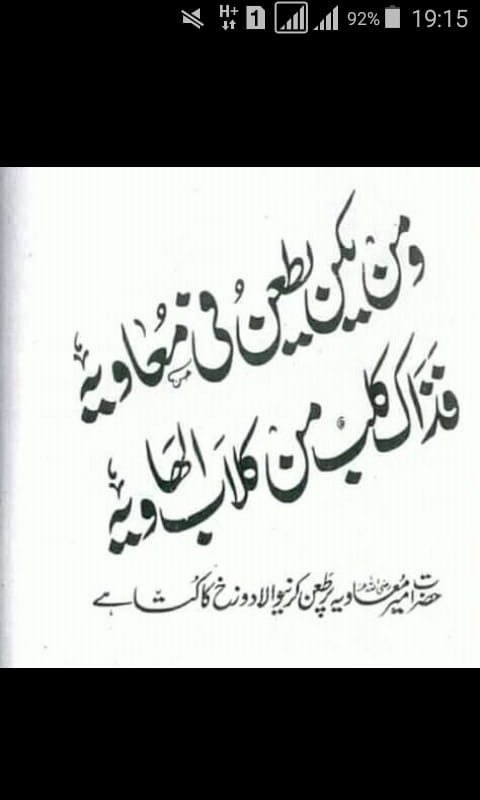 H+ 1 92% 19:15
ومنْ يكن يطعنُ فى مُعاويه
فَذَاكَ كلب منْ كلاَب الهَاويه
حضرت امیر معاویہ رضی اللہ عنہ پر طعن کرنیوالا دوزخ کا کُتّا ہے